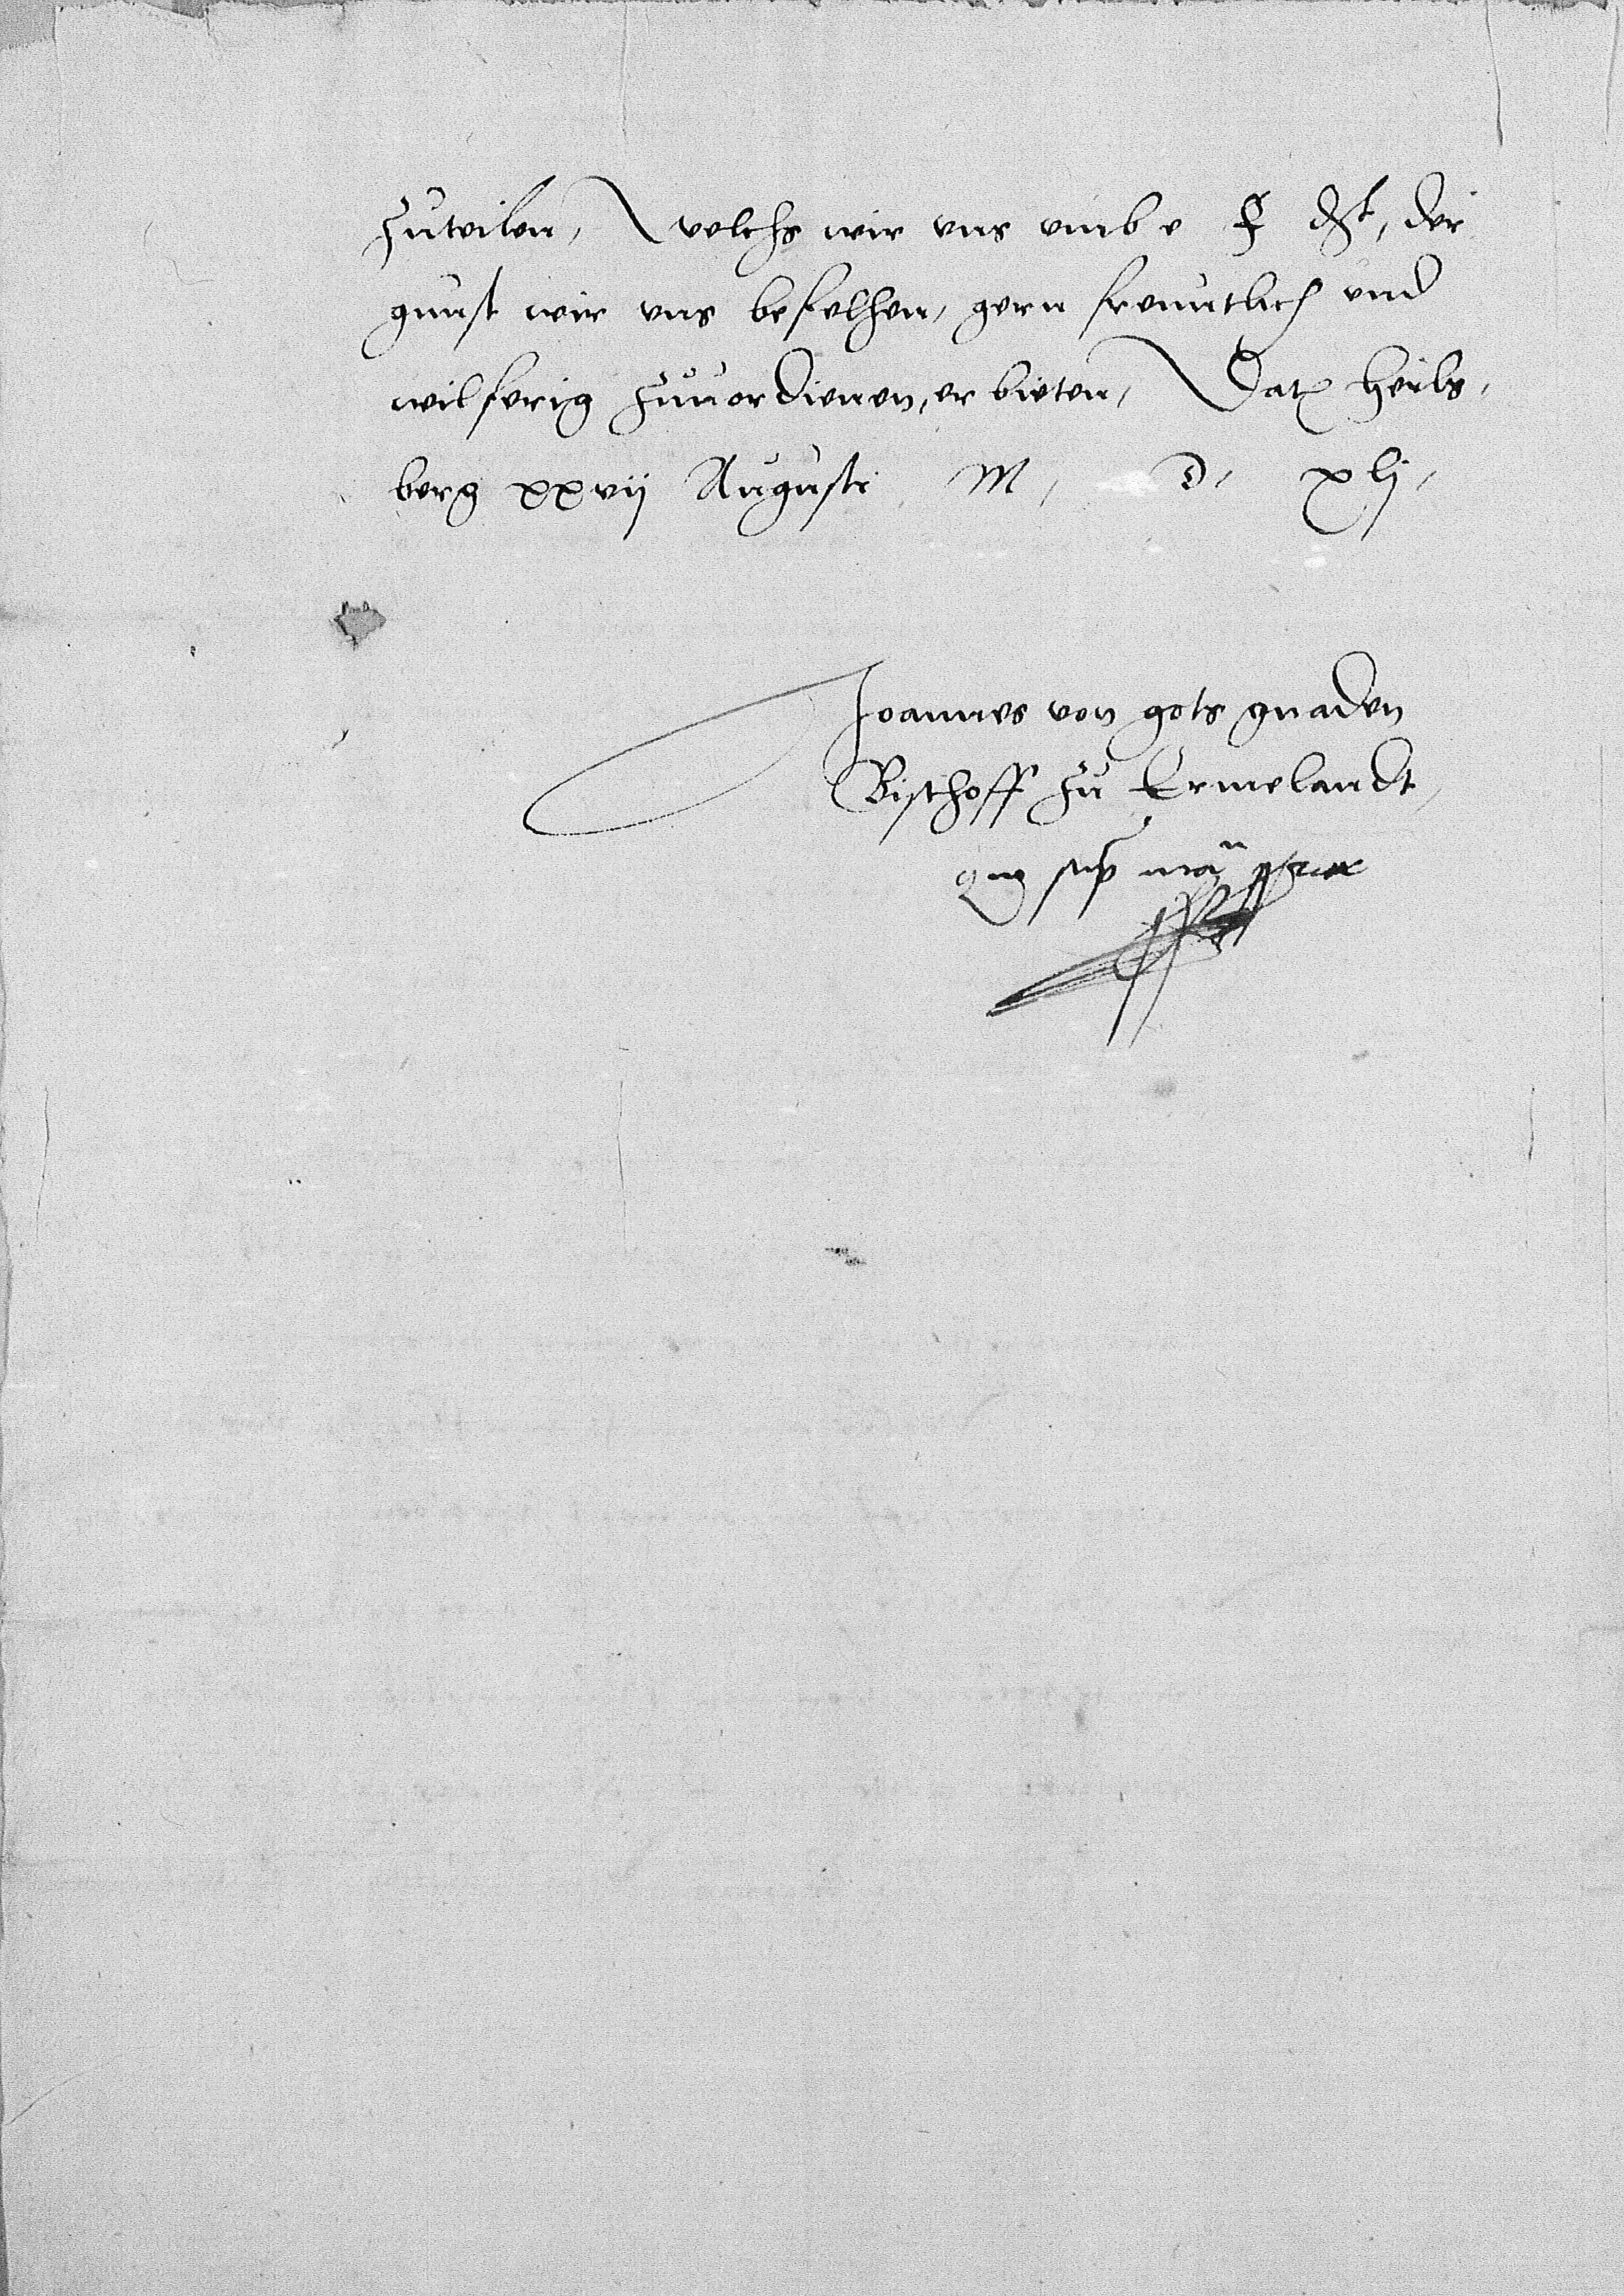 zuteilen, Welchs wir vns vmb e f dht, der
gunst wir vns befelhen, gern freuntlich vnd
wilferig zuuordienen, erbieten, Dat heils,
berg xxvij Augusti M, D, xlj,
Joannes von gots gnaden
Bischoff zu Ermelandt,
manu